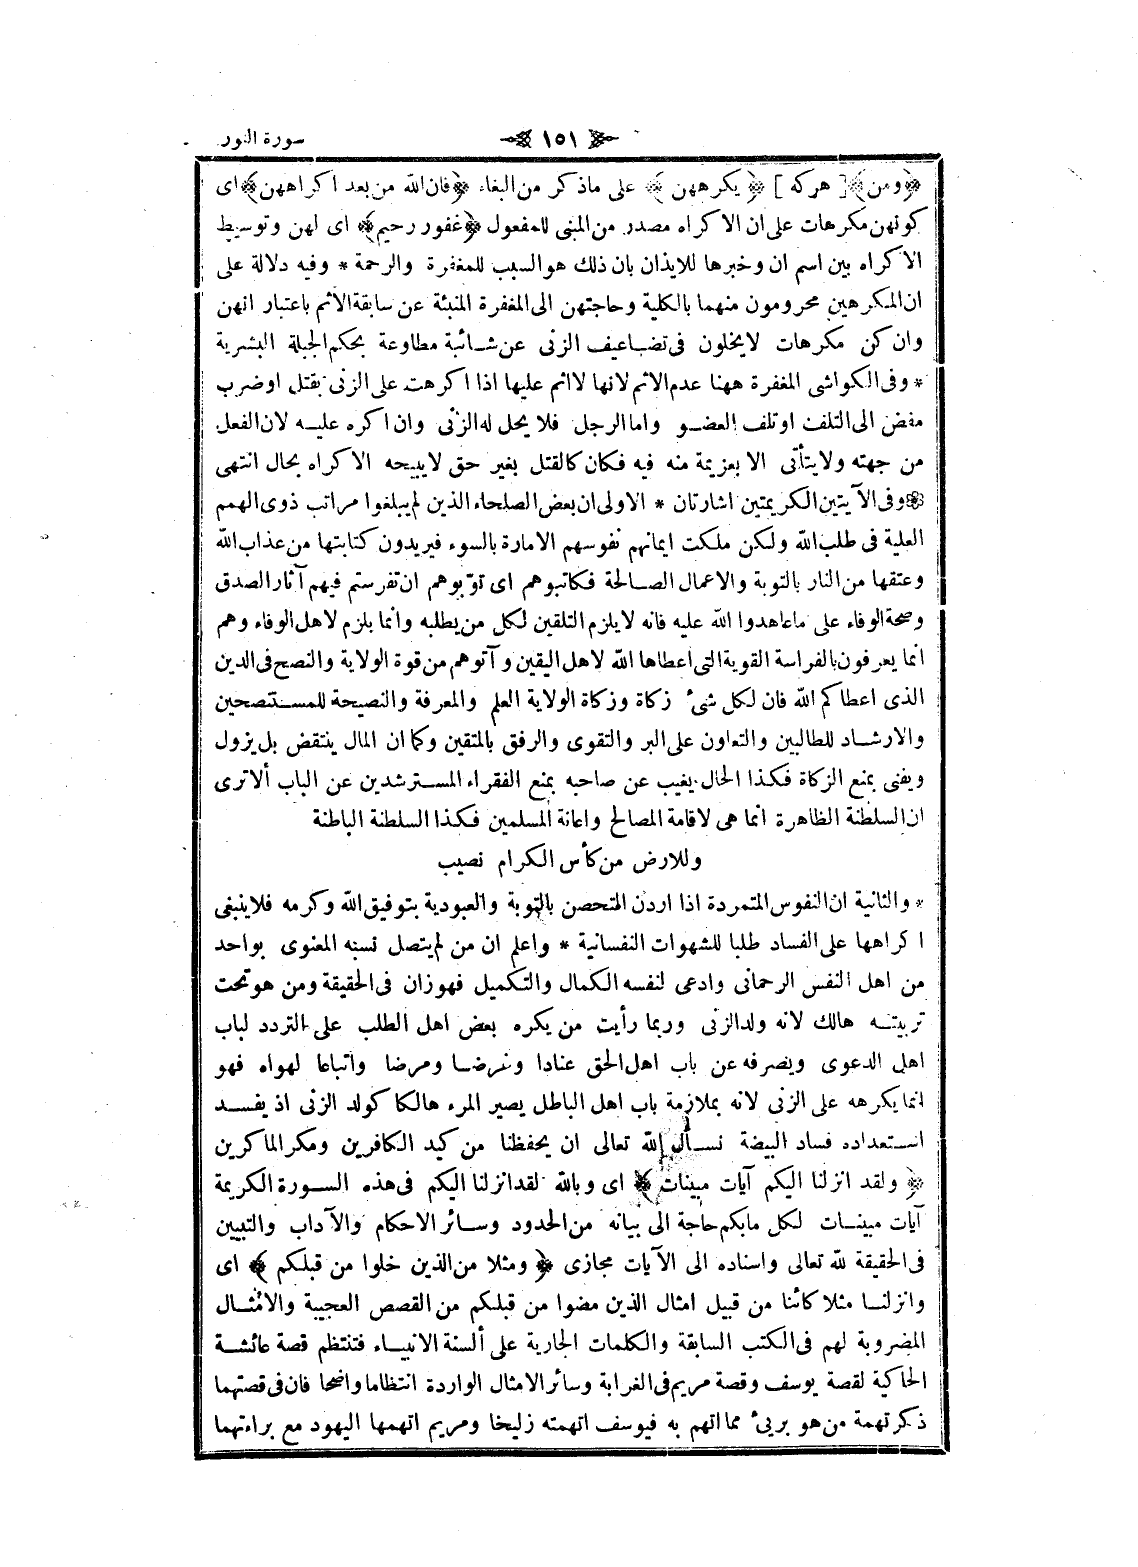 سورة النور ﴿ ١٥١ ﴾
﴿ومن﴾[ هركه ] ﴿يكرههن﴾ على ماذكر من البغاء ﴿فان الله من بعد اكراههن﴾ اى
كونهن مكرهات على ان الاكراه مصدر من المبنى للمفعول ﴿غفور رحيم﴾ اى لهن وتوسيط
الاكراه بين اسم ان وخبرها للايذان بان ذلك هو السبب للمغفرة والرحمة * وفيه دلالة على
ان المكرهين محرومون منهما بالكلية وحاجتهن الى المغفرة المنبئة عن سابقة الاثم باعتبار انهن
وان كن مكرهات لايخلون فى تضاعيف الزنى عن شائبة مطاوعة بحكم الجبلة البشرية
* وفى الكواشى المغفرة ههنا عدم الاثم لانها لااثم عليها اذا اكرهت على الزنى بقتل او ضرب
مفض الى التلف او تلف العضو واما الرجل فلا يحل له الزنى وان اكره عليه لان الفعل
من جهته ولايتأتى الا بعزيمة منه فيه فكان كالقتل بغير حق لايبيحه الاكراه بحال انتهى
وفى الآيتين الكريمتين اشارتان * الاولى ان بعض الصلحاء الذين لم يبلغوا مراتب ذوى الهمم
العلية فى طلب الله ولكن ملكت ايمانهم نفوسهم الامارة بالسوء فيريدون كتابتها من عذاب الله
وعتقها من النار بالتوبة والاعمال الصالحة فكاتبوهم اى توّبوهم ان تفرستم فيهم آثار الصدق
وصحة الوفاء على ماعاهدوا الله عليه فانه لايلزم التلقين لكل من يطلبه وانما يلزم لاهل الوفاء وهم
انما يعرفون بالفراسة القوية التى اعطاها الله لاهل اليقين وآتوهم من قوة الولاية والنصح فى الدين
الذى اعطاكم الله فان لكل شىء زكاة وزكاة الولاية العلم والمعرفة والنصيحة للمستنصحين
والارشاد للطالبين والتعاون على البر والتقوى والرفق بالمتقين وكما ان المال ينتقض بل يزول
ويفنى بمنع الزكاة فكذا الحال يغيب عن صاحبه بمنع الفقراء المسترشدين عن الباب ألاترى
ان السلطنة الظاهرة انما هى لاقامة المصالح واعانة المسلمين فكذا السلطنة الباطنة
وللارض من كأس الكرام نصيب
* والثانية ان النفوس المتمردة اذا اردن التحصن بالتوبة والعبودية بتوفيق الله وكرمه فلاينبغى
اكراهها على الفساد طلبا للشهوات النفسانية * واعلم ان من لم يتصل نسبه المعنوى بواحد
من اهل النفس الرحمانى وادعى لنفسه الكمال والتكميل فهو زان فى الحقيقة ومن هو تحت
تربيته هالك لانه ولد الزنى وربما رأيت من يكره بعض اهل الطلب على التردد لباب
اهل الدعوى ويصرفه عن باب اهل الحق عنادا وغرضا ومرضا واتباعا لهواه فهو
انما يكرهه على الزنى لانه بملازمة باب اهل الباطل يصير المرء هالكا كولد الزنى اذ يفسد
استعداده فساد البيضة نسأل الله تعالى ان يحفظنا من كيد الكافرين ومكر الماكرين
﴿ولقد انزلنا اليكم آيات مبينات﴾ اى وبالله لقد انزلنا اليكم فى هذه السورة الكريمة
آيات مبينات لكل مابكم حاجة الى بيانه من الحدود وسائر الاحكام والآداب والتبيين
فى الحقيقة لله تعالى واسناده الى الآيات مجازى ﴿ومثلا من الذين خلوا من قبلكم﴾ اى
وانزلنا مثلا كائنا من قبيل امثال الذين مضوا من قبلكم من القصص العجيبة والامثال
المضروبة لهم فى الكتب السابقة والكلمات الجارية على ألسنة الانبياء فتنتظم قصة عائشة
الحاكية لقصة يوسف وقصة مريم فى الغرابة وسائر الامثال الواردة انتظاما واضحا فان فى قصتهما
ذكر تهمة من هو برىء مما اتهم به فيوسف اتهمته زليخا ومريم اتهمها اليهود مع براءتهما